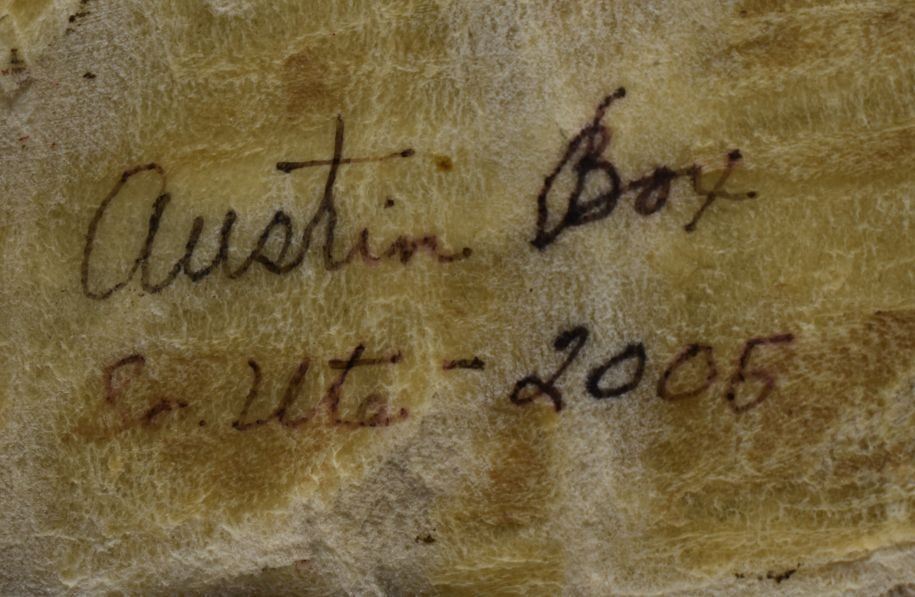 Austin Box
So. Ute - 2005